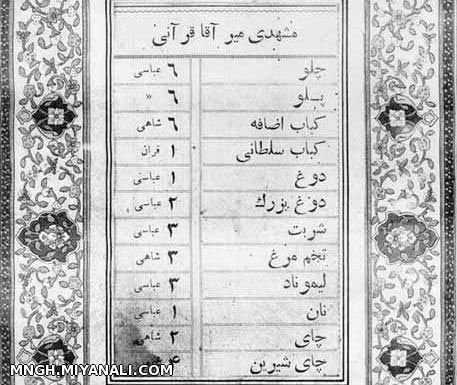 مشهدی میر آقا قرآنی
چلو ۶ عباسی
پلو ۶ »
کباب اضافه ۶ شاهی
کباب سلطانی ۱ قران
دوغ ۱ عباسی
دوغ بزرك ۲ عباسی
شربت ۳ عباسی
تخم مرغ ۳ شاهی
لیموناد ۳ عباسی
نان ۱ عباسی
چای ۲ شاهی
چای شیرین ۴
MNGH.MIYANALI.COM